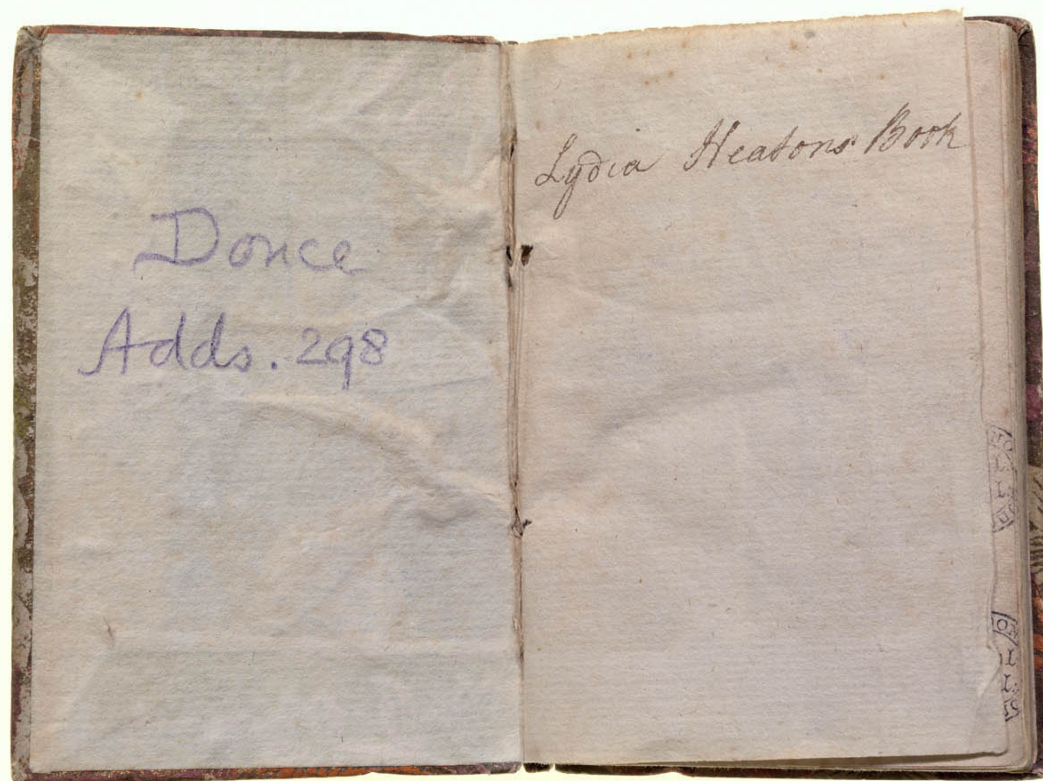 Douce
Adds. 298
Lydia Heatons Book